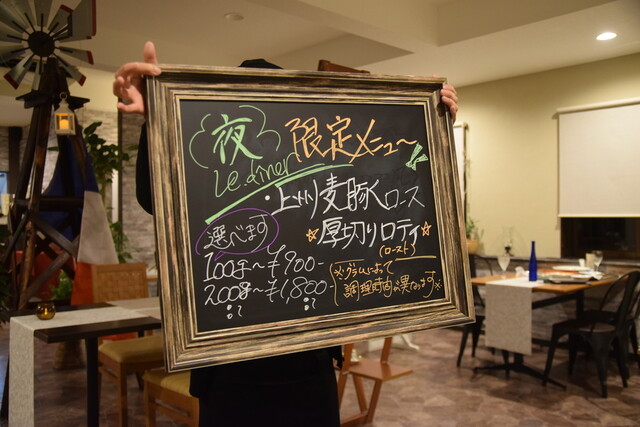 夜 限定メニュー
Le.dîner
・上州麦豚ロース
☆厚切りロティ☆
(ロースト)
選べます
100g〜¥900-
200g〜¥1,800-
※グラムによって
調理時間が異なります※